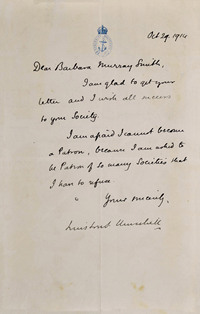 Oct 29. 1914
Dear Barbara Murray Smith,
I am glad to get your
letter and I wish all success
to your Society.
I am afraid I cannot become
a Patron, because I am asked to
be Patron of so many Societies that
I have to refuse.
Yours sincerely,
Winston S Churchill